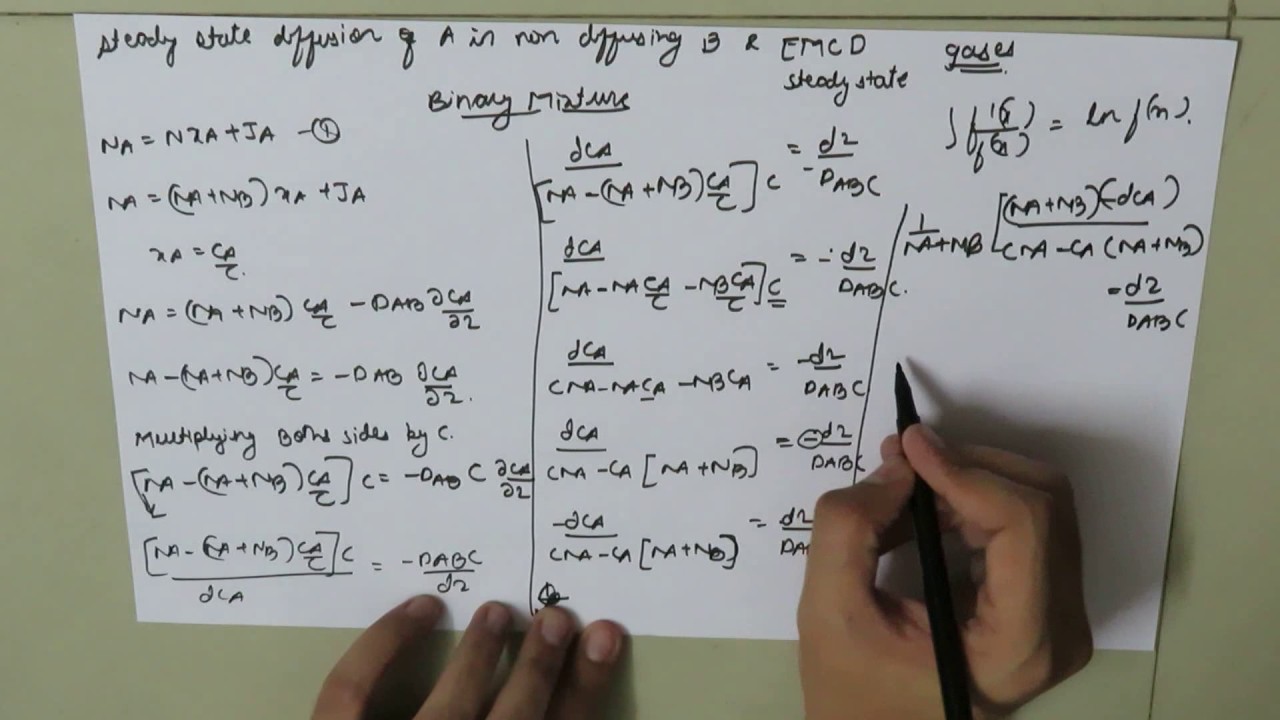 steady state diffusion of A in non diffusing B & EMCD gases
steady state
Binary Mixture
NA = NxA + JA -①
NA = (NA+NB) xA + JA
xA = CA/C.
NA = (NA+NB) CA/C - DAB ∂CA/∂z
NA - (NA+NB) CA/C = - DAB ∂CA/∂z.
Multiplying Boths sides by C.
[NA - (NA+NB) CA/C] C = - DAB C ∂CA/∂z
[NA - (NA+NB) CA/C] C / dCA = - DABC/dz
dCA / [NA - (NA+NB) CA/C] C = dz / - DABC
dCA / [NA - NA CA/C - NB CA/C] C = - dz / DABC.
dCA / CNA - NACA - NBCA = - dz / DABC
dCA / CNA - CA [NA+NB] = - dz / DABC
- dCA / CNA - CA [NA+NB] = dz
∫ f'(x)/f(x) = ln f(x).
1/NA+NB [(NA+NB)(-dCA) / CNA - CA (NA+NB)
= dz / DABC